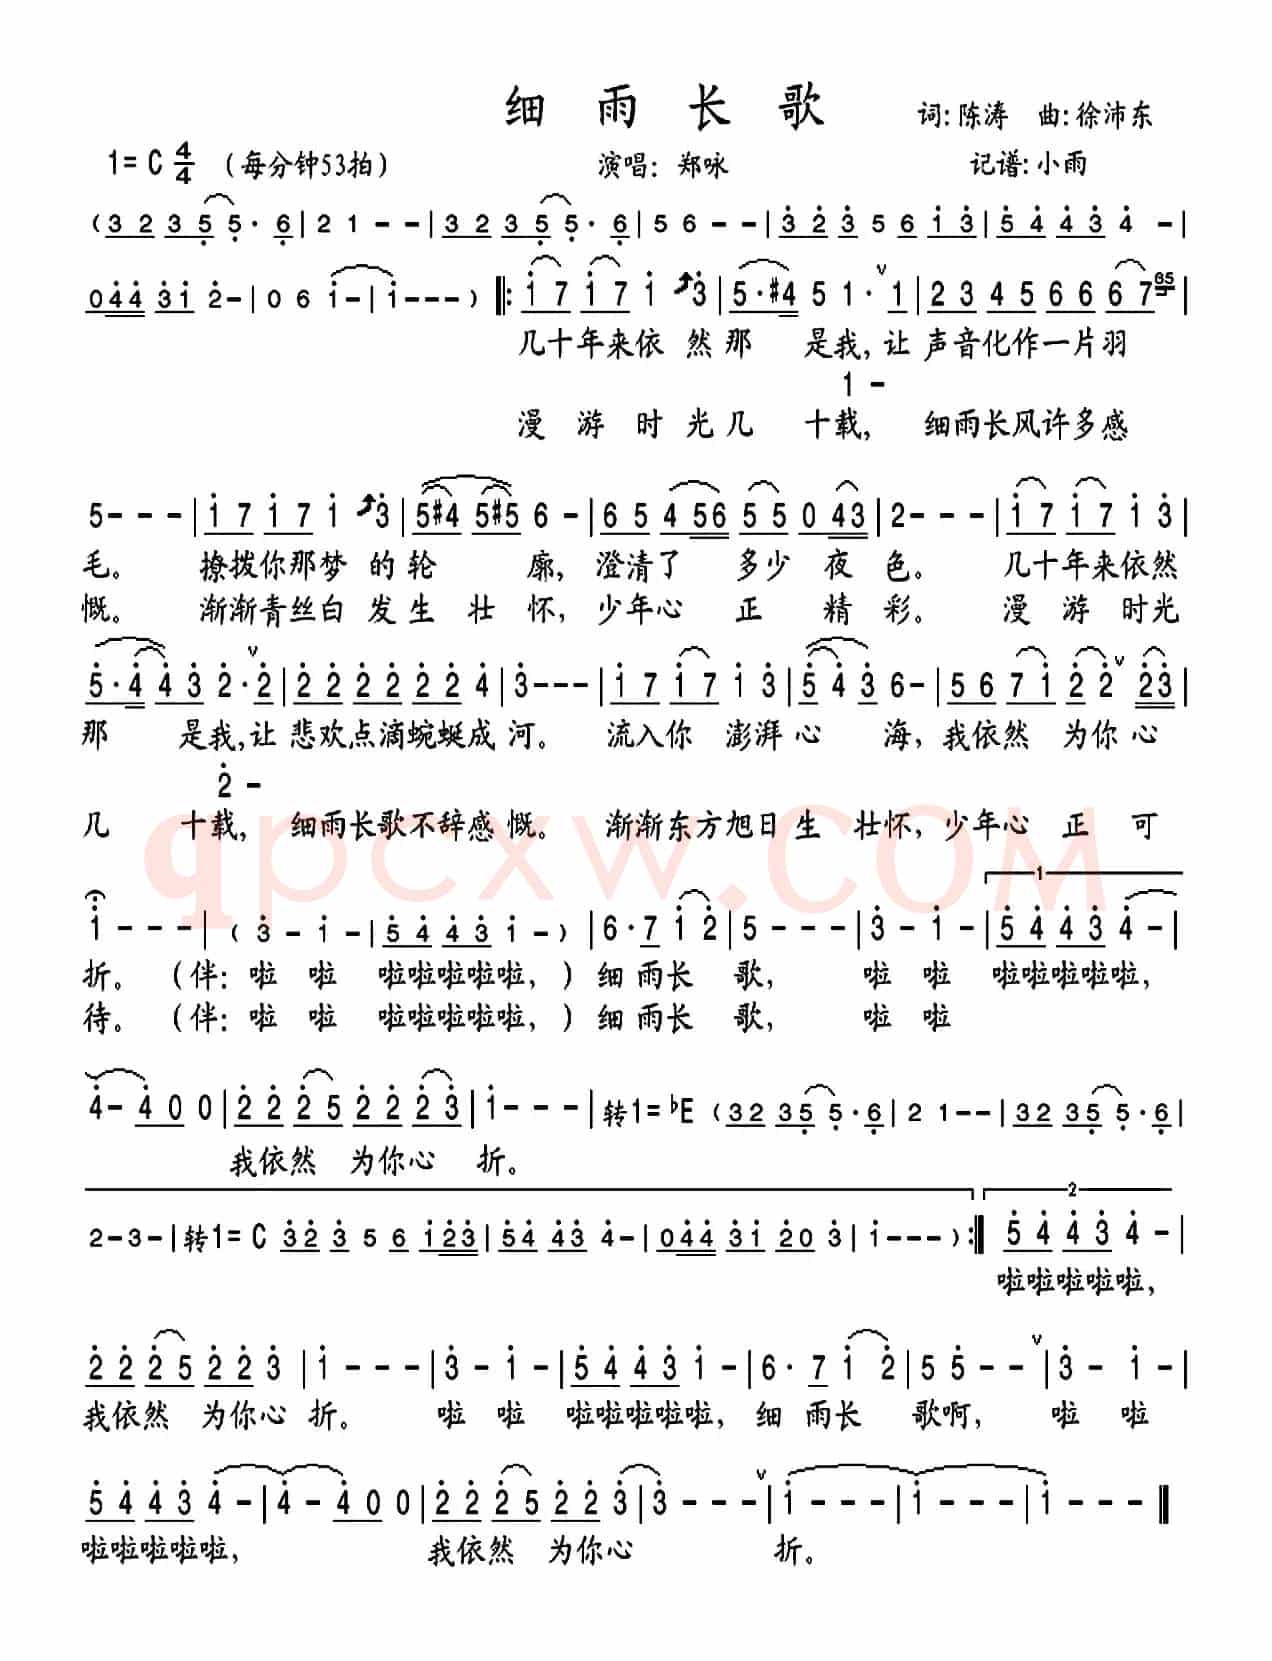 细雨长歌 词:陈涛 曲:徐沛东
1=C 4/4 (每分钟53拍) 演唱:郑咏 记谱:小雨
(3 2 3 5 5· 6|2 1 - -|3 2 3 5 5· 6|5 6 - -|3 2 3 5 6 1 3|5 4 4 3 4 -|
0 4 4 3 1 2-|0 6 1-|1---)‖:1 7 1 7 1 3|5·#4 5 1· 1|2 3 4 5 6 6 6 7 65|
几十年来依然那 是我,让声音化作一片羽
1 -
漫游时光几十载, 细雨长风许多感
5- - -|1 7 1 7 1 3|5#4 5#5 6 -|6 5 4 56 5 5 0 43|2- - -|1 7 1 7 1 3|
毛。 撩拨你那梦的轮廓,澄清了多少夜色。 几十年来依然
慨。 渐渐青丝白发生壮怀,少年心正精彩。 漫游时光
5·4 4 3 2·2|2 2 2 2 2 2 4|3---|1 7 1 7 1 3|5 4 3 6-|5 6 7 1 2 2 23|
那是我,让悲欢点滴蜿蜒成河。 流入你澎湃心海,我依然为你心
2 -
几十载, 细雨长歌不辞感慨。 渐渐东方旭日生壮怀,少年心正可
qpcxw.COM
1
1 - - -|(3 - 1 -|5 4 4 3 1 -)|6·7 1 2|5 - - -|3 - 1 -|5 4 4 3 4 -|
折。(伴:啦 啦 啦啦啦啦啦,)细雨长歌, 啦 啦 啦啦啦啦啦,
待。(伴:啦 啦 啦啦啦啦啦,)细雨长歌, 啦 啦
4- 4 0 0|2 2 2 5 2 2 2 3|1 - - -|转1=♭E (3 2 3 5 5· 6|2 1--|3 2 3 5 5· 6|
我依然为你心折。
2
2-3-|转1=C 3 2 3 5 6 1 2 3|5 4 4 3 4-|0 4 4 3 1 2 0 3|1---):‖5 4 4 3 4 -|
啦啦啦啦啦,
2 2 2 5 2 2 3|1 - - -|3 - 1 -|5 4 4 3 1 -|6· 7 1 2|5 5 - -|3 - 1 -|
我依然为你心折。 啦 啦 啦啦啦啦啦,细雨长歌啊, 啦 啦
5 4 4 3 4 -|4 - 4 0 0|2 2 2 5 2 2 3|3 - - -|1 - - -|1 - - -|1 - - -‖
啦啦啦啦啦, 我依然为你心 折。